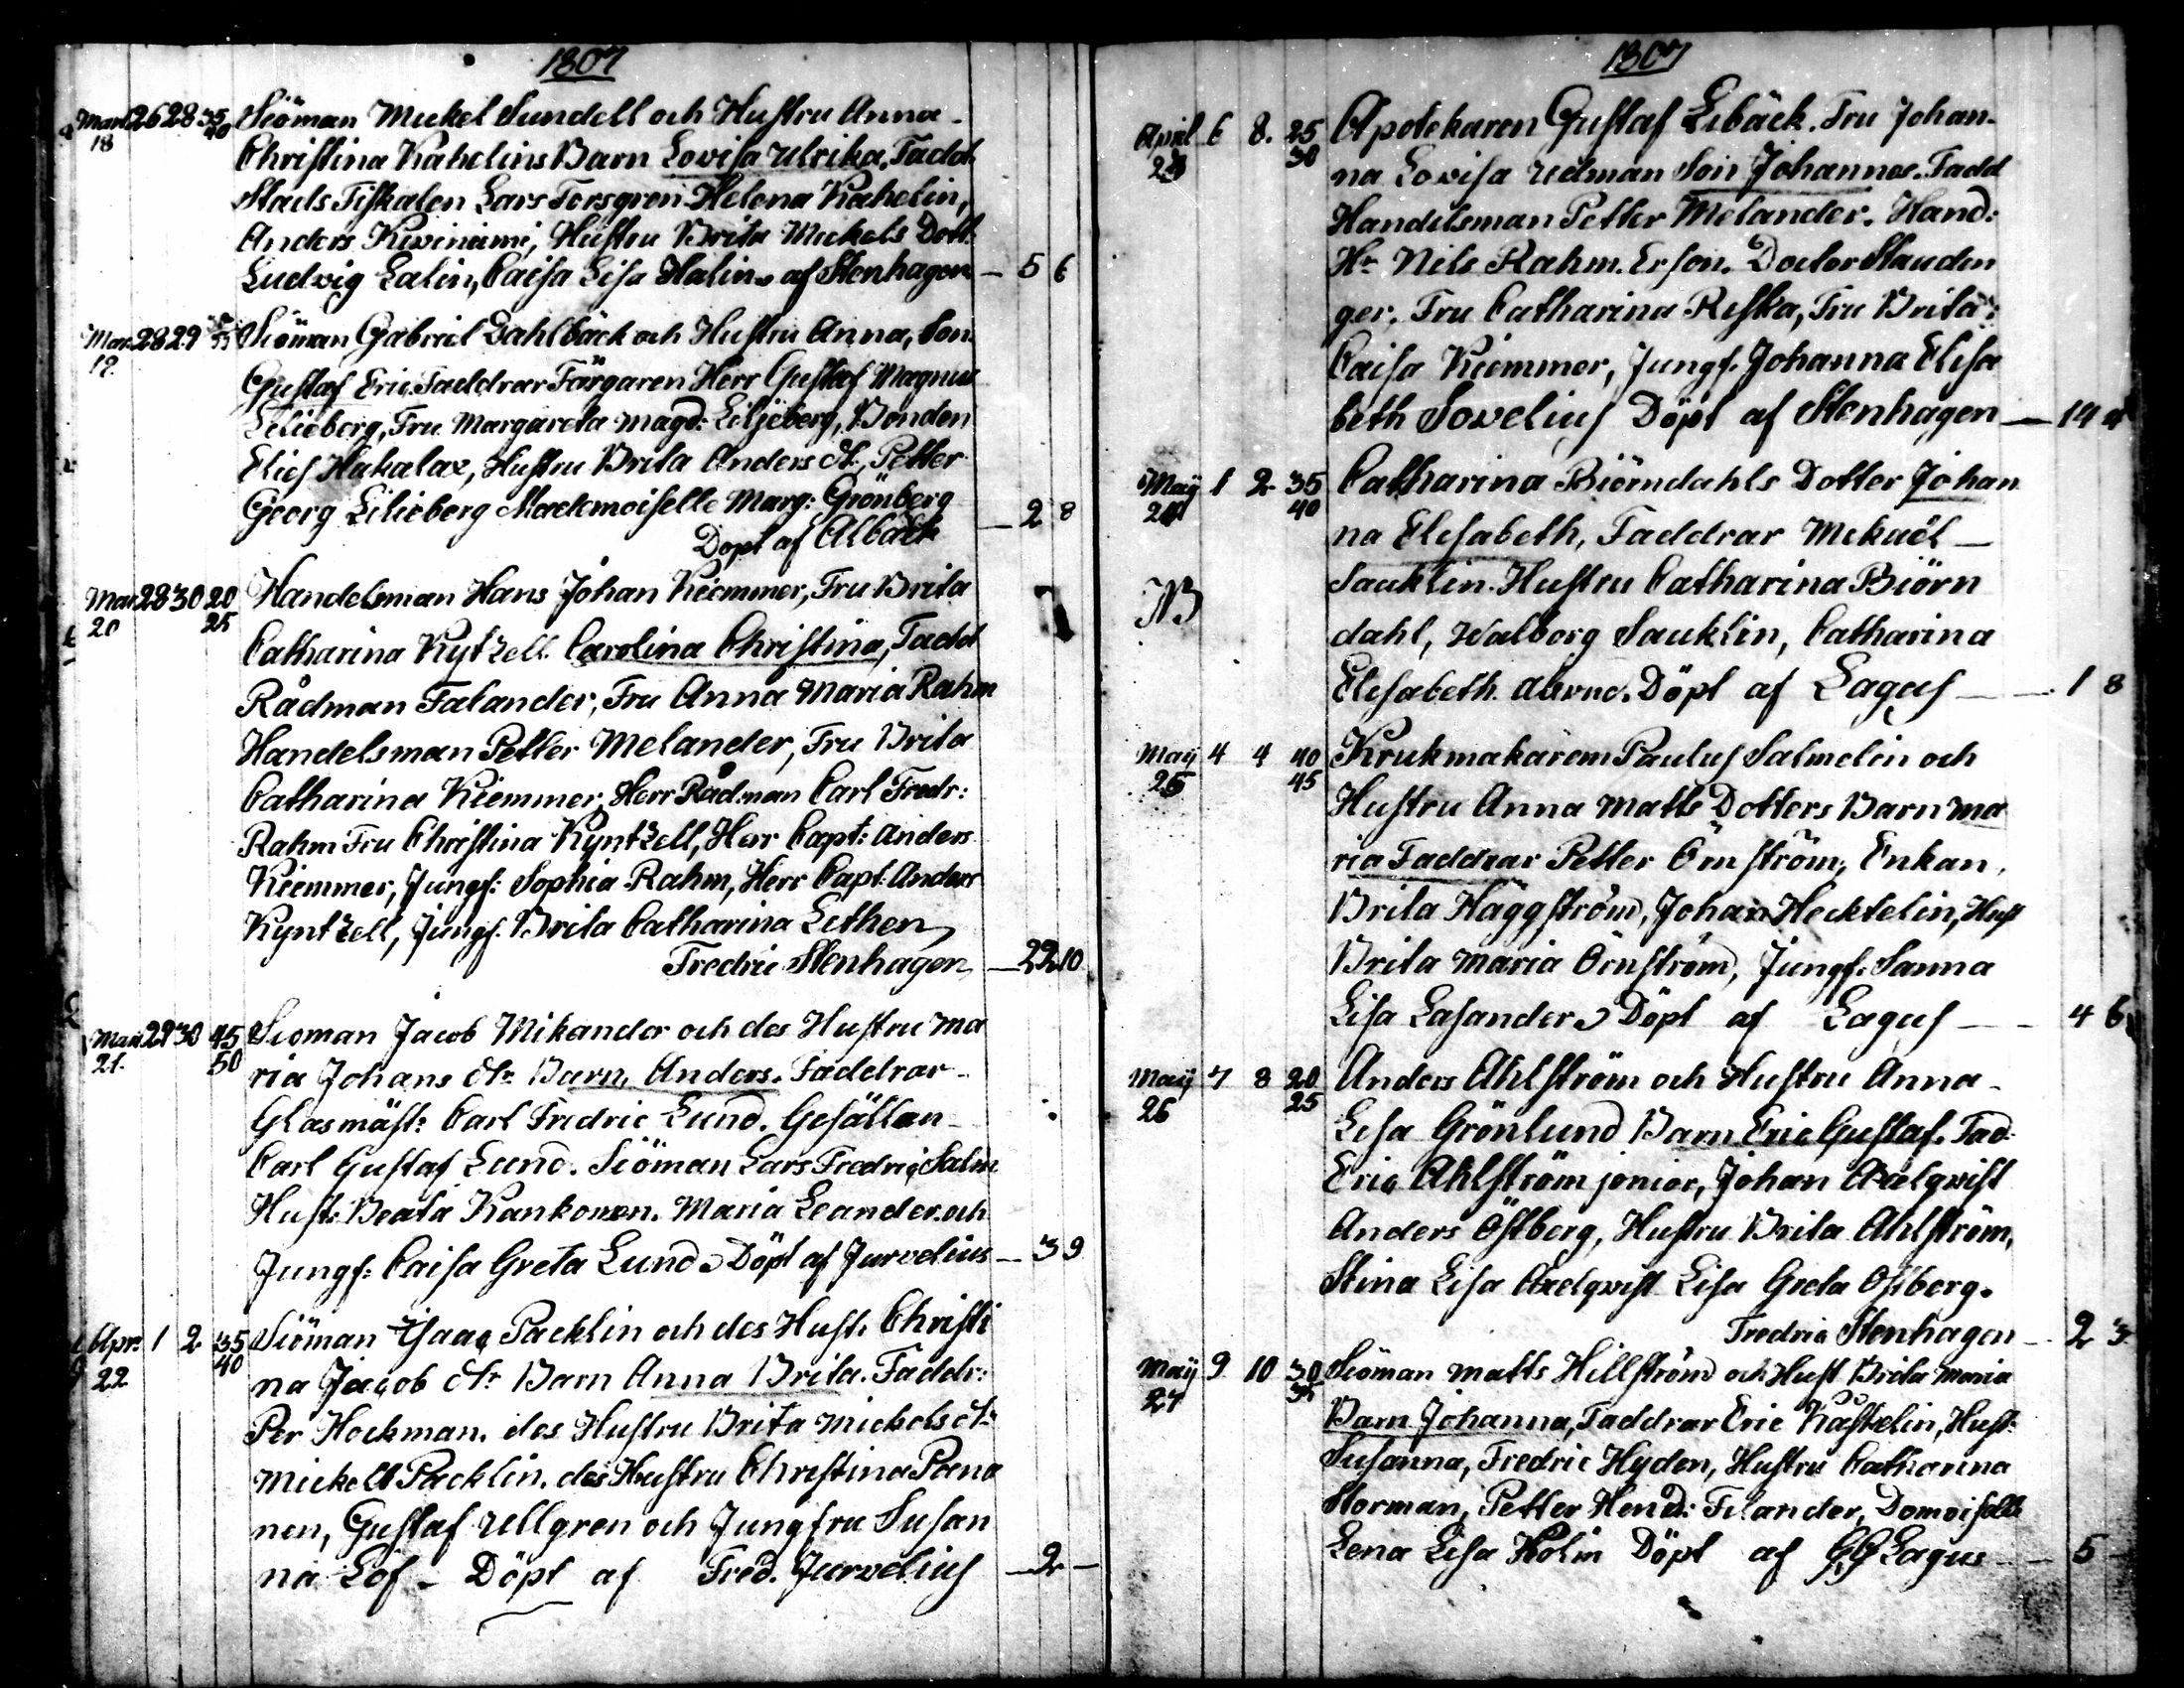 1807
Mart 26 28 35 Siöman Mickel Sundell och Hustru Anna
18 40 Christina Kahelins Barn Lovisa Ulrika, Fadd
Stads Fiskalen Lars Forsgren Helena Kahelin,
Anders Kiviniemi, Hustru Brita Mickels Dott:
Ludvig Lalin, Caisa Lisa Halin af Stenhagen — 5 6
Mar 28 29 Siöman Gabriel Dahlbäck och Hustru Anna, Son
19. 35 Gustaf Eric Faddrar Färgaren Herr Gustaf Magnus
Lilieberg, Fru Margareta Magd: Liljeberg, Bonden
Elies Hukalax, Hustru Brita Anders dr, Petter
Georg Lilieberg Mademoiselle Marg: Grönberg
Dopt af Alback — 2 8
Mar 28 30 20 Handelsman Hans Johan Kiemmer, Fru Brita
20 25 Catharina Kytzell Carolina Christina, Fadd
Rådman Falander, Fru Anna Maria Rahm
Handelsman Petter Melander, Fru Brita
Catharina Kiemmer, Herr Rådman Carl Fredr:
Rahm Fru Christina Kyntzell, Herr Capt: Anders
Kiemmer, Jungf: Sophia Rahm, Herr Capt: Anders
Kyntzell, Jungf. Brita Catharina Lithen
Fredric Stenhagen — 22 10
Mars 29 30 45 Sioman Jacob Mikander och des Hustru Ma
21. 50 ria Johans dr Barn, Anders. Faddrar
Glasmäst: Carl Fredric Lund. Gesällen
Carl Gustaf Lund. Siöman Lars Fredric Salm
Hust: Beata Kankonen. Maria Leander och
Jungf: Caisa Greta Lund Döpt af Jurvelius — 3 9
Apr: 1 2 35 Siöman Isaac Packlin och des Hust. Christi
22 40 na Jacob dr Barn Anna Brita. Faddr:
Per Hockman. des Hustru Brita Mickels dr
Mickell Packlin. des Hustru Christina Pana
nen, Gustaf Ullgren och Jungfru Susan
na Löf - Döpt af Fred. Jurvelius — 2 —
1807
April 6 8. 25 Apotekaren Gustaf Libäck. Fru Johan
23 30 na Lovisa Udman Son Johannes. Fadd
Handelsman Petter Melander. Hand:
Hr Nils Rahm. Erson. Doctor Stauden
ger. Fru Catharina Riska, Fru Brita
Caisa Kiemmer, Jungf. Johanna Elisa
beth Sovelius Döpt af Stenhagen — 14 4
Maÿ 1 2 35 Catharina Biörndahls Dotter Johan
24 40 na Elisabeth, Faddrar Mikaël —
NB Sauklin. Hustru Catharina Biörn
dahl, Walborg Sauklin, Catharina
Elisabeth. Döpt af Lagus — 1 8
Maÿ 4 4 40 Krukmakaren Paulus Salmelin och
25 45 Hustru Anna Matts Dotters Barn Ma
ria Faddrar Petter Örnström, Enkan
Brita Häggström, Johan Hecktelin, Hust
Brita Maria Örnström, Jungf. Sanna
Lisa Lasander Döpt af Lagus — 4 6
Maÿ 7 8 20 Anders Ahlström och Hustru Anna
26 25 Lisa Grönlund Barn Eric Gustaf. Fad
Eric Ahlström junior, Johan Axelqvist
Anders Östberg, Hustru Brita Ahlström,
Stina Lisa Axelqvist Lisa Greta Östberg.
Fredric Stenhagen — 2 3
Maÿ 9 10 30 Siöman Matts Hillström och Hust Brita Maria
27 35 Barn Johanna, Faddrar Eric Kastelin, Hust:
Susanna, Fredric Hyden, Hustru Catharina
Storman, Petter Hend: Filander, Demoiselle
Lena Lisa Holm Döpt af GG Lagus — 5 —